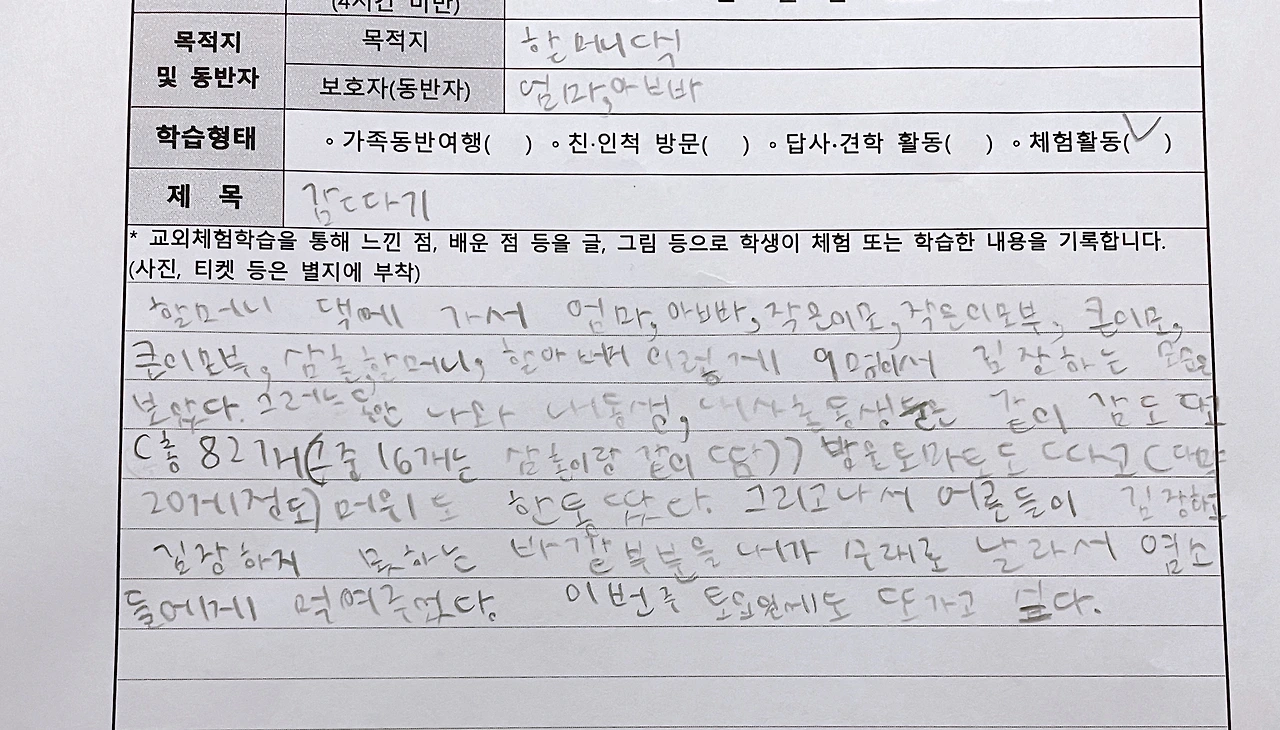 (4시간 미만)
목적지 및 동반자 목적지 할머니댁
보호자(동반자) 엄마, 아브바
학습형태 ∘ 가족동반여행( ) ∘ 친·인척 방문( ) ∘ 답사·견학 활동( ) ∘ 체험활동(✓)
제 목 감따기
* 교외체험학습을 통해 느낀 점, 배운 점 등을 글, 그림 등으로 학생이 체험 또는 학습한 내용을 기록합니다.
(사진, 티켓 등은 별지에 부착)
할머니 댁에 가서 엄마, 아브바, 작은이모, 작은이모부, 큰이모,
큰이모부, 삼촌, 할머니, 할아버버 이렇게 9명에서 김장하는 모습을
보았다. 그러는 동안 나와 내동생, 사촌동생은 같이 감도 따고
(총 82개(중 16개는 삼촌이랑 같이 땀)) 방울토마토도 따고(대략
20개정도) 머위도 한통 땄다. 그리고나서 어른들이 김장하고
김장하지 못하는 바깥부분을 내가 수래로 날라서 염소
들에게 먹여주었다. 이번주 토요일에도 또가고 싶다.